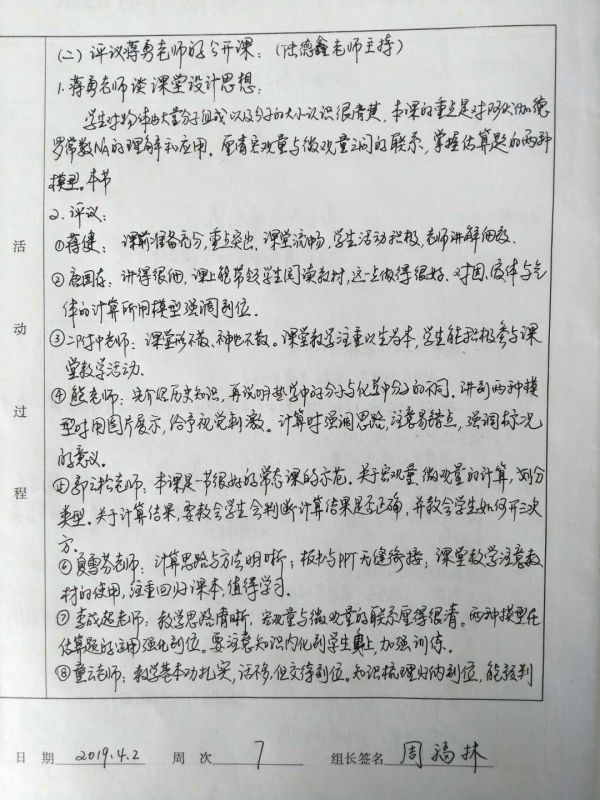 (二)评议蒋勇老师的公开课:(陆德鑫老师主持)
1.蒋勇老师谈课堂设计思想:
学生对物体由大量分子组成以及分子的大小认识很清楚,本课的重点是对阿伏伽德
罗常数NA的理解和应用。厘清宏观量与微观量之间的联系,掌握估算题的两种
模型。本节
2.评议:
①蒋健:课前准备充分,重点突出,课堂流畅,学生活动积极,老师讲解细致.
②唐国存:讲得很细,课上能带领学生阅读教材,这一点做得很好.对固、液体与气
体的计算所用模型强调到位.
③二附中老师:课堂形不散、神也不散。课堂教学注重以生为本,学生能积极参与课
堂教学活动.
④熊老师:先介绍历史知识,再说明热学中的分子与化学中分子的不同.讲到两种模
型时用图片展示,给予视觉刺激。计算时强调思路,注意易错点,强调标况
的意义。
⑤郭云松老师:本课是一节很好的常态课的示范。关于宏观量、微观量的计算,划分
类型。关于计算结果,要教会学生会判断计算结果是否正确,并教会学生如何开三次
方.
⑥夏雪芬老师:计算思路与方法明晰,板书与PPT无缝衔接,课堂教学注意教
材的使用,注重回归课本,值得学习.
⑦李成超老师:教学思路清晰,宏观量与微观量的联系厘得很清。两种模型在
估算题的运用强化到位。要注意知识内化到学生上,加强训练.
⑧童云老师:教学基本功扎实,话不多,但交待到位。知识梳理归纳到位,能谈判
活
动
过
程
日 期 2019.4.2 周 次 7 组长签名 周福林